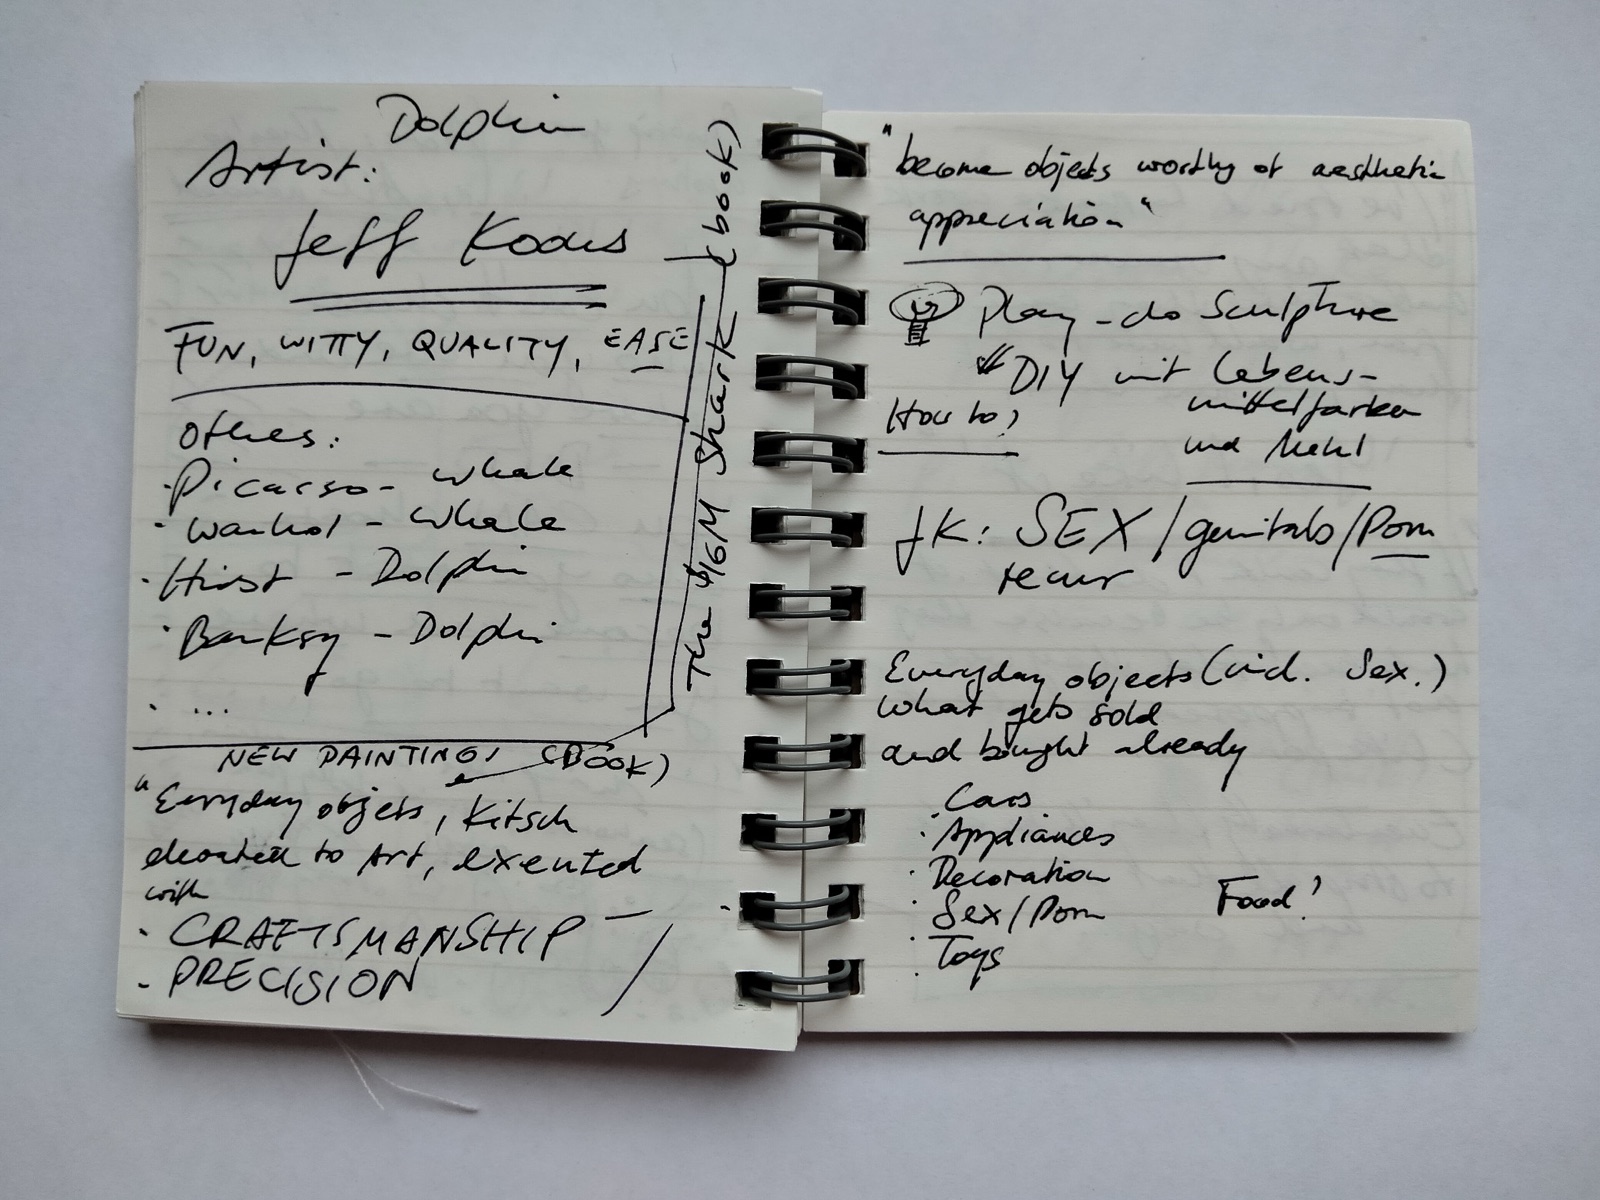 Dolphin
Artist:
Jeff Koons
FUN, WITTY, QUALITY, EASE
Others:
· Picasso - Whale
· Warhol - Whale
· Hirst - Dolphin
· Banksy - Dolphin
· ...
The $16M Shark (book)
NEW PAINTINGS (BOOK)
"Everyday objets, Kitsch
elevated to Art, executed
with
· CRAFTSMANSHIP -
- PRECISION /
"become objects worthy of aesthetic
appreciation"
Play-do Sculpture
DIY mit Lebens-
mittelfarben
und Mehl
How to?
JK: SEX/genitals/Porn
recur
Everyday objects (incl. Sex.)
what gets sold
and bought already
· Cars
· Appliances
· Decoration
· Sex/Porn Food?
· Toys